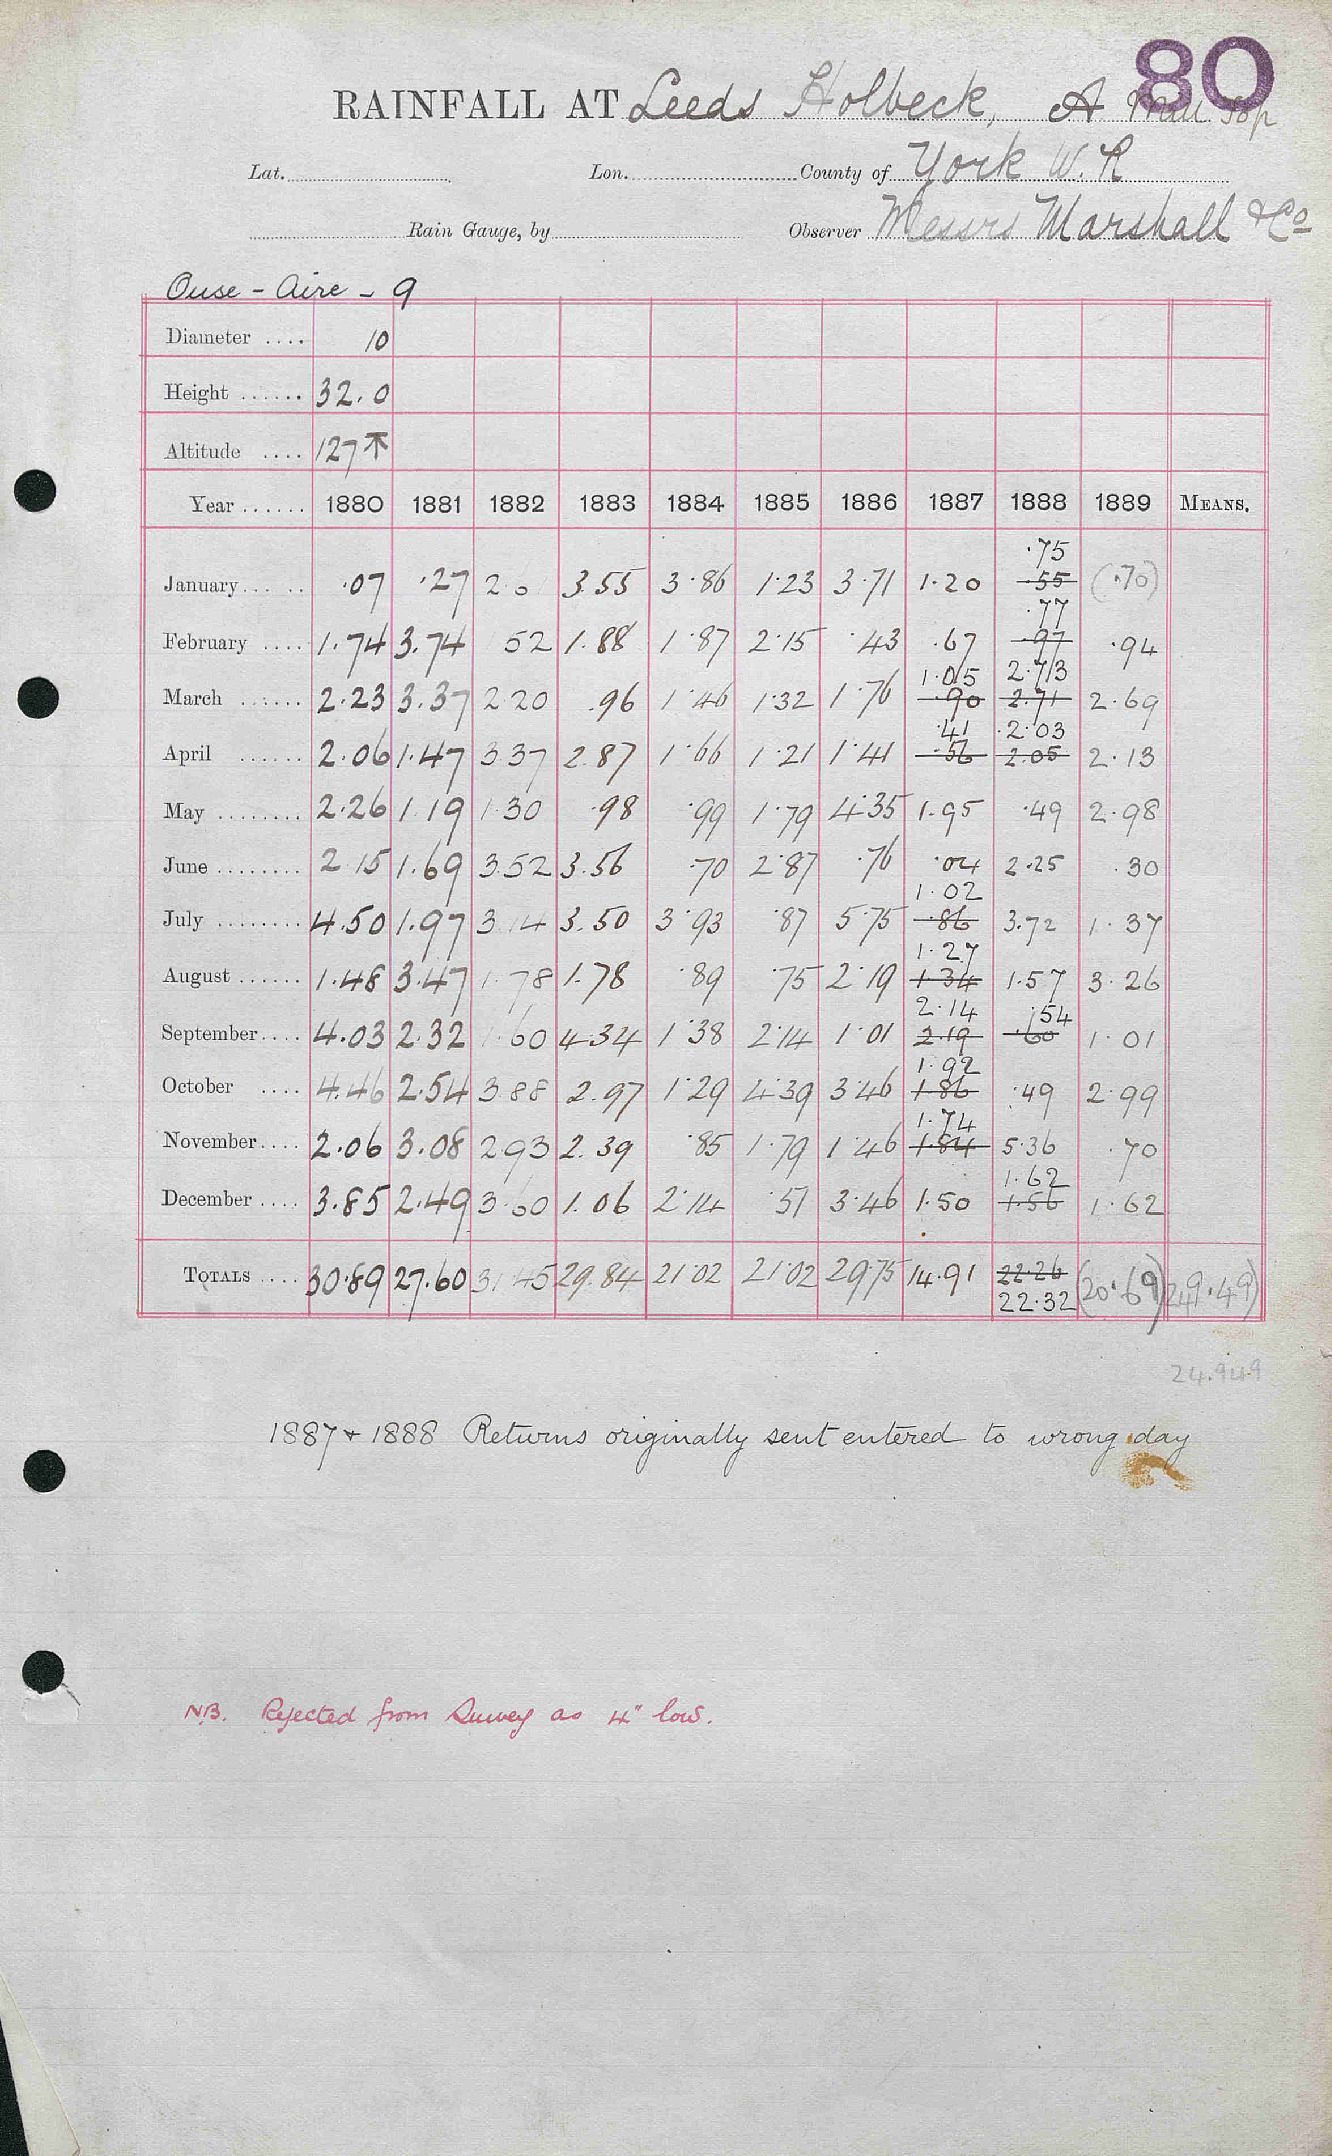 80
RAINFALL AT Leeds Holbeck, A
Lat. Lon. County of York W.R
Rain Gauge, by Observer Messrs Marshall & Co
Ouse - Aire - 9
Diameter .... 10
Height ...... 32.0
Altitude .... 127
Year ...... 1880 1881 1882 1883 1884 1885 1886 1887 1888 1889 MEANS.
.75
January ... .07 .27 2.61 3.55 3.86 1.23 3.71 1.20 .55 (.70)
.77
February .... 1.74 3.74 52 1.88 1.87 2.15 .43 .67 .97 .94
1.05 2.73
March ...... 2.23 3.37 2.20 .96 1.46 1.32 1.76 .90 2.71 2.69
.41 2.03
April ...... 2.06 1.47 3.37 2.87 1.66 1.21 1.41 .56 2.05 2.13
May ........ 2.26 1.19 1.30 .98 .99 1.79 4.35 1.95 .49 2.98
June ........ 2.15 1.69 3.52 3.56 .70 2.87 .76 .04 2.25 .30
1.02
July ........ 4.50 1.97 3.14 3.50 3.93 .87 5.75 .86 3.72 1.37
1.27
August ...... 1.48 3.47 1.78 1.78 .89 .75 2.19 1.34 1.57 3.26
2.14 .54
September .... 4.03 2.32 1.60 4.34 1.38 2.14 1.01 2.19 .60 1.01
1.92
October .... 4.46 2.54 3.88 2.97 1.29 4.39 3.46 1.86 .49 2.99
1.74
November .... 2.06 3.08 2.93 2.39 .85 1.79 1.46 1.84 5.36 .70
1.62
December .... 3.85 2.49 3.60 1.06 2.14 .51 3.46 1.50 1.56 1.62
TOTALS .... 30.89 27.60 31.45 29.84 21.02 21.02 29.75 14.91 22.26 (20.69) 249.49)
22.32
24.949
1887 + 1888 Returns originally sent entered to wrong day
NB. Rejected from Survey as 4" low.